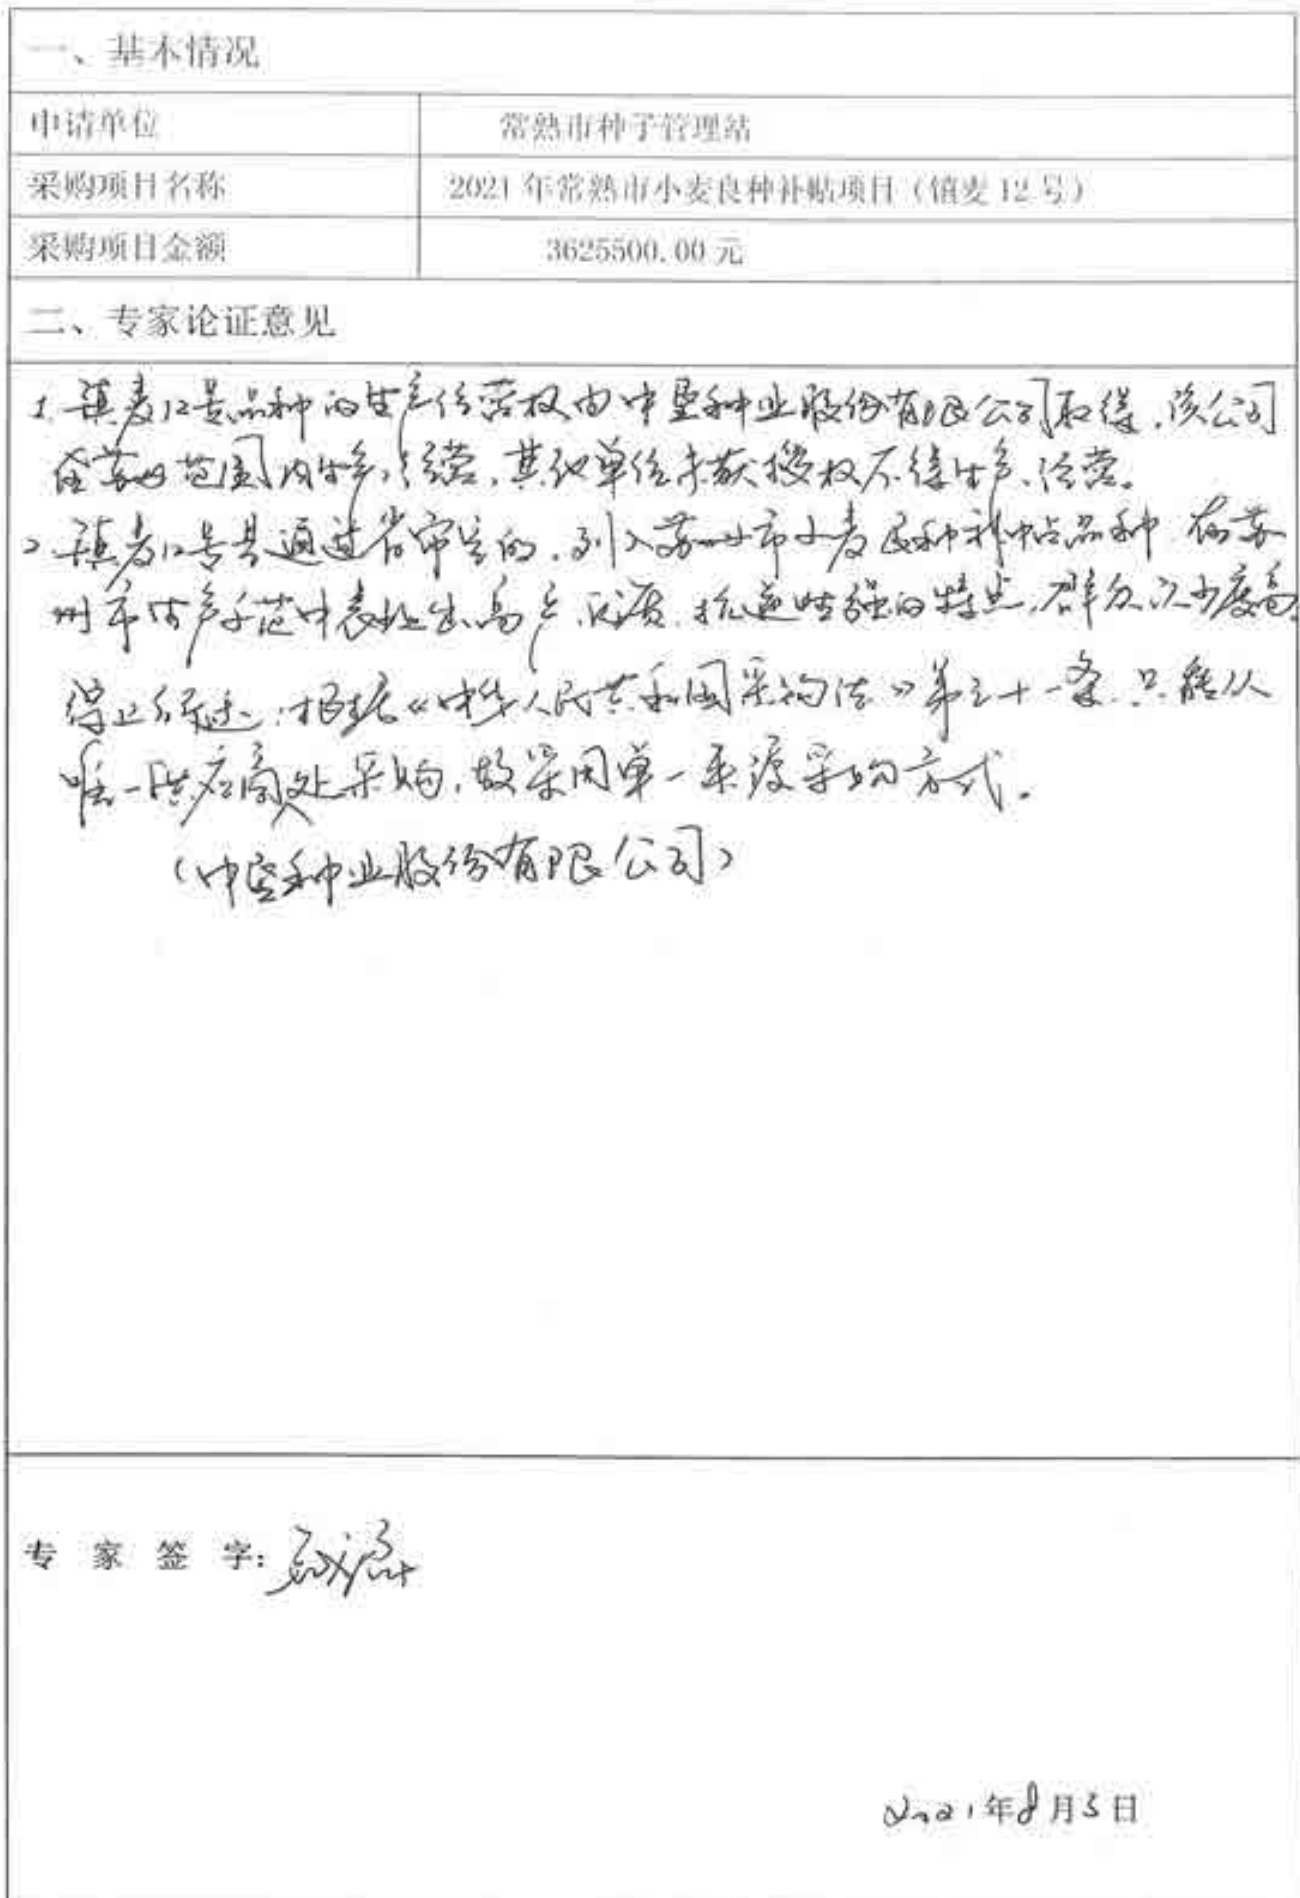 一、基本情况
申请单位 常熟市种子管理站
采购项目名称 2021年常熟市小麦良种补贴项目（镇麦12号）
采购项目金额 3625500.00元
二、专家论证意见
1.镇麦12号品种的生产经营权由中垦种业股份有限公司取得,该公司
在苏州范围内生产,经营,其他单位未获授权不得生产、经营。
2.镇麦12号是通过省审定的,列入苏州市小麦良种补贴品种 在苏
州市生产示范中表现出高产、优质、抗逆性强的特点,群众认可度高。
综上所述:根据《中华人民共和国采购法》第三十一条,只能从
唯一供应商处采购,故采用单一来源采购方式。
（中垦种业股份有限公司）
专家签字:
2021年8月3日